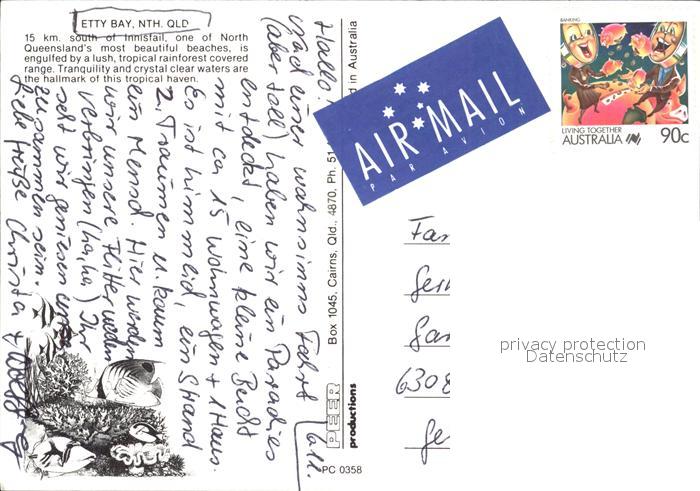 ETTY BAY, NTH. QLD
15 km. south of Innisfail, one of North
Queensland's most beautiful beaches, is
engulfed by a lush, tropical rainforest covered
range. Tranquility and crystal clear waters are
the hallmark of this tropical haven.
Hallo!
nach einer wahnsinns Fahrt
(aber toll) haben wir ein Paradies
entdeckt, eine kleine Bucht
mit ca 15 Wohnwagen + 1 Haus.
Es ist himmlich, ein Strand
z. Träumen u. kaum
ein Mensch. Hier werden
wir unsere Flitterwochen
verbringen (ha, ha) Ihr
seht wir geniesen unser
zusammen sein.
Liebe Grüße Christa +
PEER
productions
Box 1045, Cairns, Qld., 4870, Ph. 51
d in Australia
PC 0358
AIR MAIL
PAR AVION
BANKING
LIVING TOGETHER
AUSTRALIA 90c
Fam
Ger
Gar
6308
Ge
privacy protection
Datenschutz